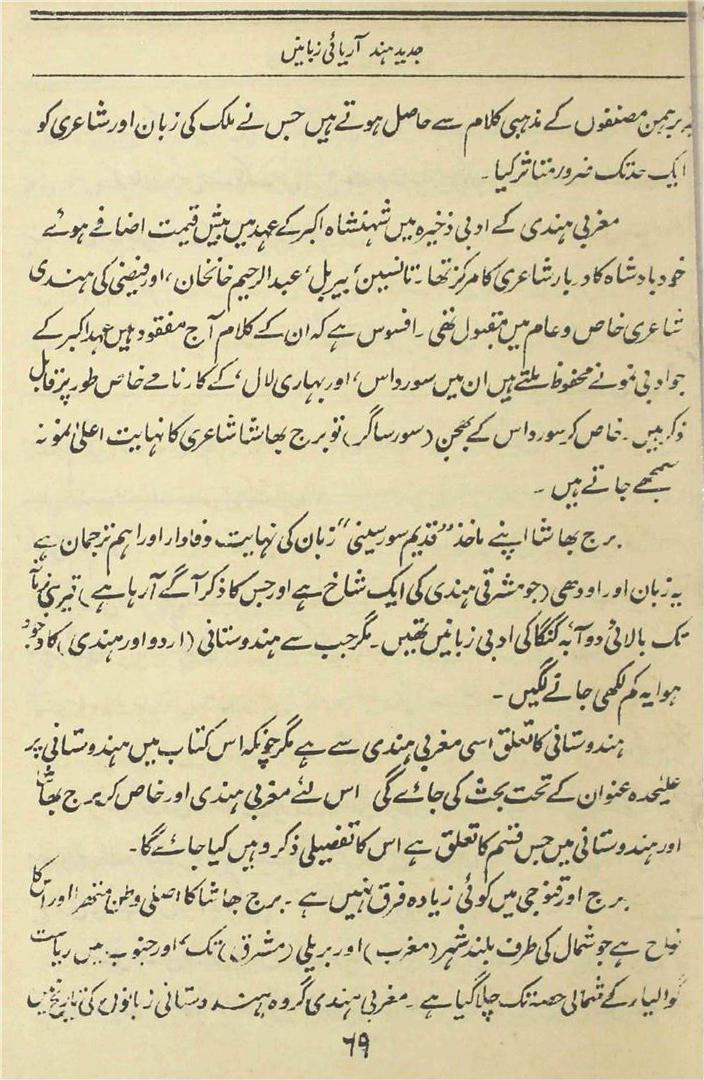 جدید ہند آریائی زبانیں
برہمن مصنفوں کے مذہبی کلام سے حاصل ہوتے ہیں جس نے ملک کی زبان اور شاعری کو
ایک حد تک ضرور متاثر کیا۔
مغربی ہندی کے ادبی ذخیرہ میں شہنشاہ اکبر کے عہد میں بیش قیمت اضافے ہوئے
خود بادشاہ کا دربار شاعری کا مرکز تھا۔ تانسین، بیربل، عبدالرحیم خانخان، اور فیضی کی ہندی
شاعری خاص و عام میں مقبول تھی۔ افسوس ہے کہ ان کے کلام آج مفقود ہیں عہد اکبر کے
جو ادبی نمونے محفوظ ملتے ہیں ان میں سور داس، اور بہاری لال، کے کارنامے خاص طور پر قابل
ذکر ہیں۔ خاص کر سور داس کے بھجن (سور ساگر) تو برج بھاشا شاعری کا نہایت اعلیٰ نمونہ
سمجھے جاتے ہیں۔
برج بھاشا اپنے ماخذ ”قدیم سورسینی“ زبان کی نہایت وفادار اور اہم ترجمان ہے
یہ زبان اور اودھی (جو مشرقی ہندی کی ایک شاخ ہے اور جس کا ذکر آگے آرہا ہے) قریبی زمانہ
تک بالائی دوآبہ گنگا کی ادبی زبانیں تھیں۔ مگر جب سے ہندوستانی (اردو اور ہندی) کا وجود
ہوا یہ کم لکھی جانے لگیں۔
ہندوستانی کا تعلق اسی مغربی ہندی سے ہے مگر چونکہ اس کتاب میں ہندوستانی پر
علیٰحدہ عنوان کے تحت بحث کی جائے گی اس لئے مغربی ہندی اور خاص کر برج بھاشا
اور ہندوستانی میں جس قسم کا تعلق ہے اس کا تفصیلی ذکر وہیں کیا جائے گا۔
برج اور قنوجی میں کوئی زیادہ فرق نہیں ہے۔ برج بھاشا کا اصلی وطن متھرا اور اس کا
نواح ہے جو شمال کی طرف بلند شہر (مغرب) اور بریلی (مشرق) تک، اور جنوب میں ریاست
گوالیار کے شمالی حصہ تک چلا گیا ہے۔ مغربی ہندی گروہ ہندوستانی زبانوں کی تاریخ میں
۶۹